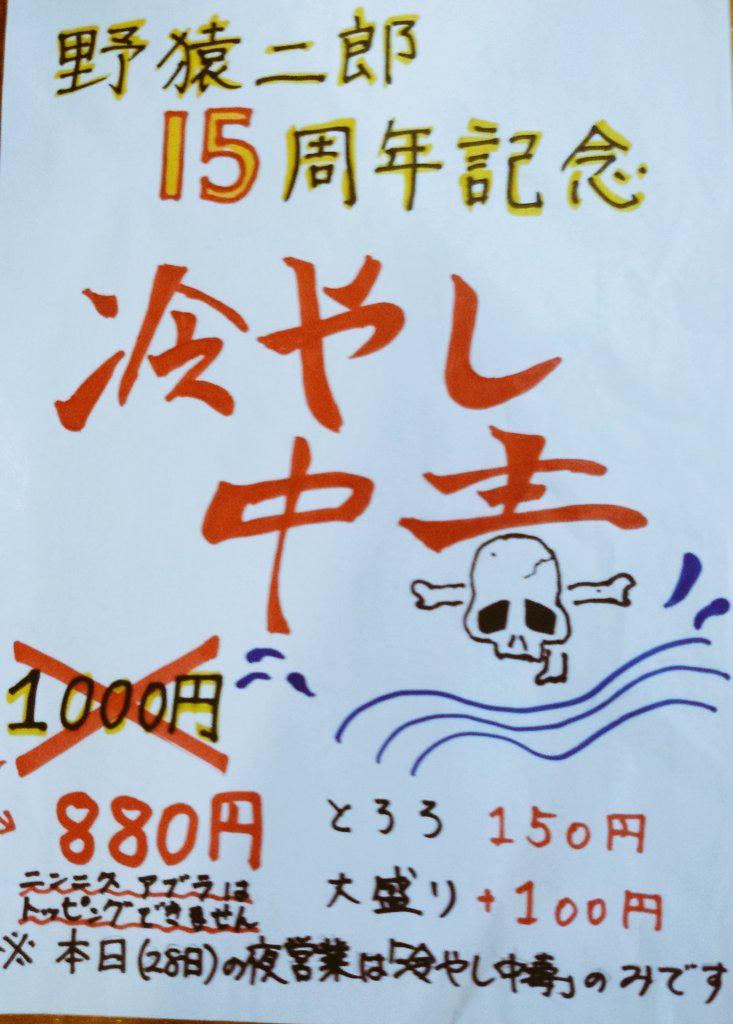 野猿二郎
15周年記念
冷やし
中毒
1000円
880円
ニンニク アブラは
トッピングできません
とろろ 150円
大盛り +100円
※ 本日(28日)の夜営業は「冷やし中毒」のみです